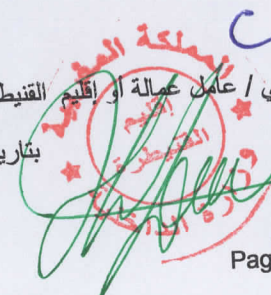 ي / عامل عمالة أو إقليم القنيط
بتاري
المملكة المغربية
إقليم
القنيطرة
وزارة الداخلية
Pag